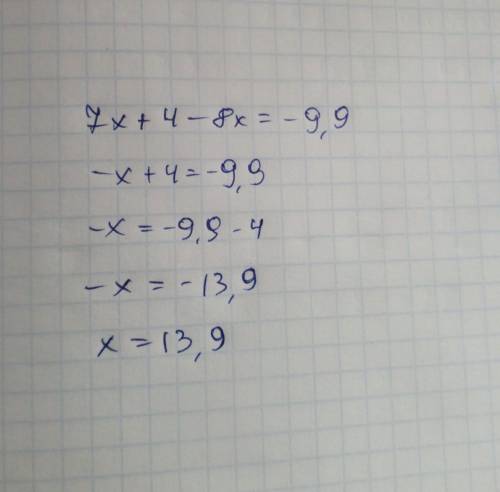 7x + 4 - 8x = - 9,9
-x + 4 = -9,9
-x = -9,9 - 4
-x = -13,9
x = 13,9